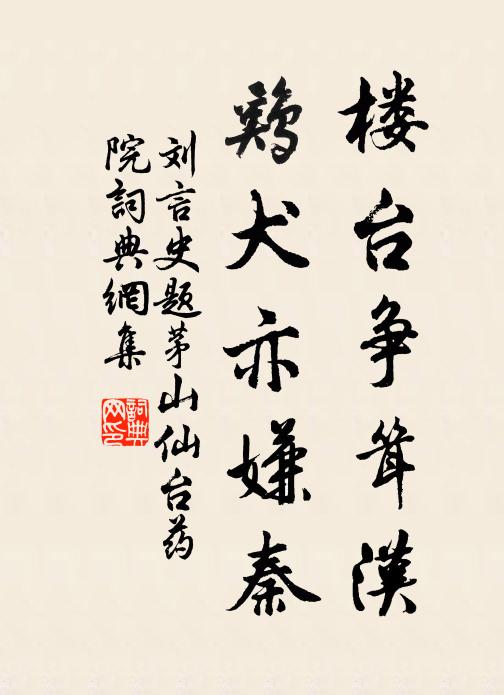 楼台争耸漢
鷄犬亦嫌秦
刘言史题茅山仙台药
院詞典網集
詞典
网印